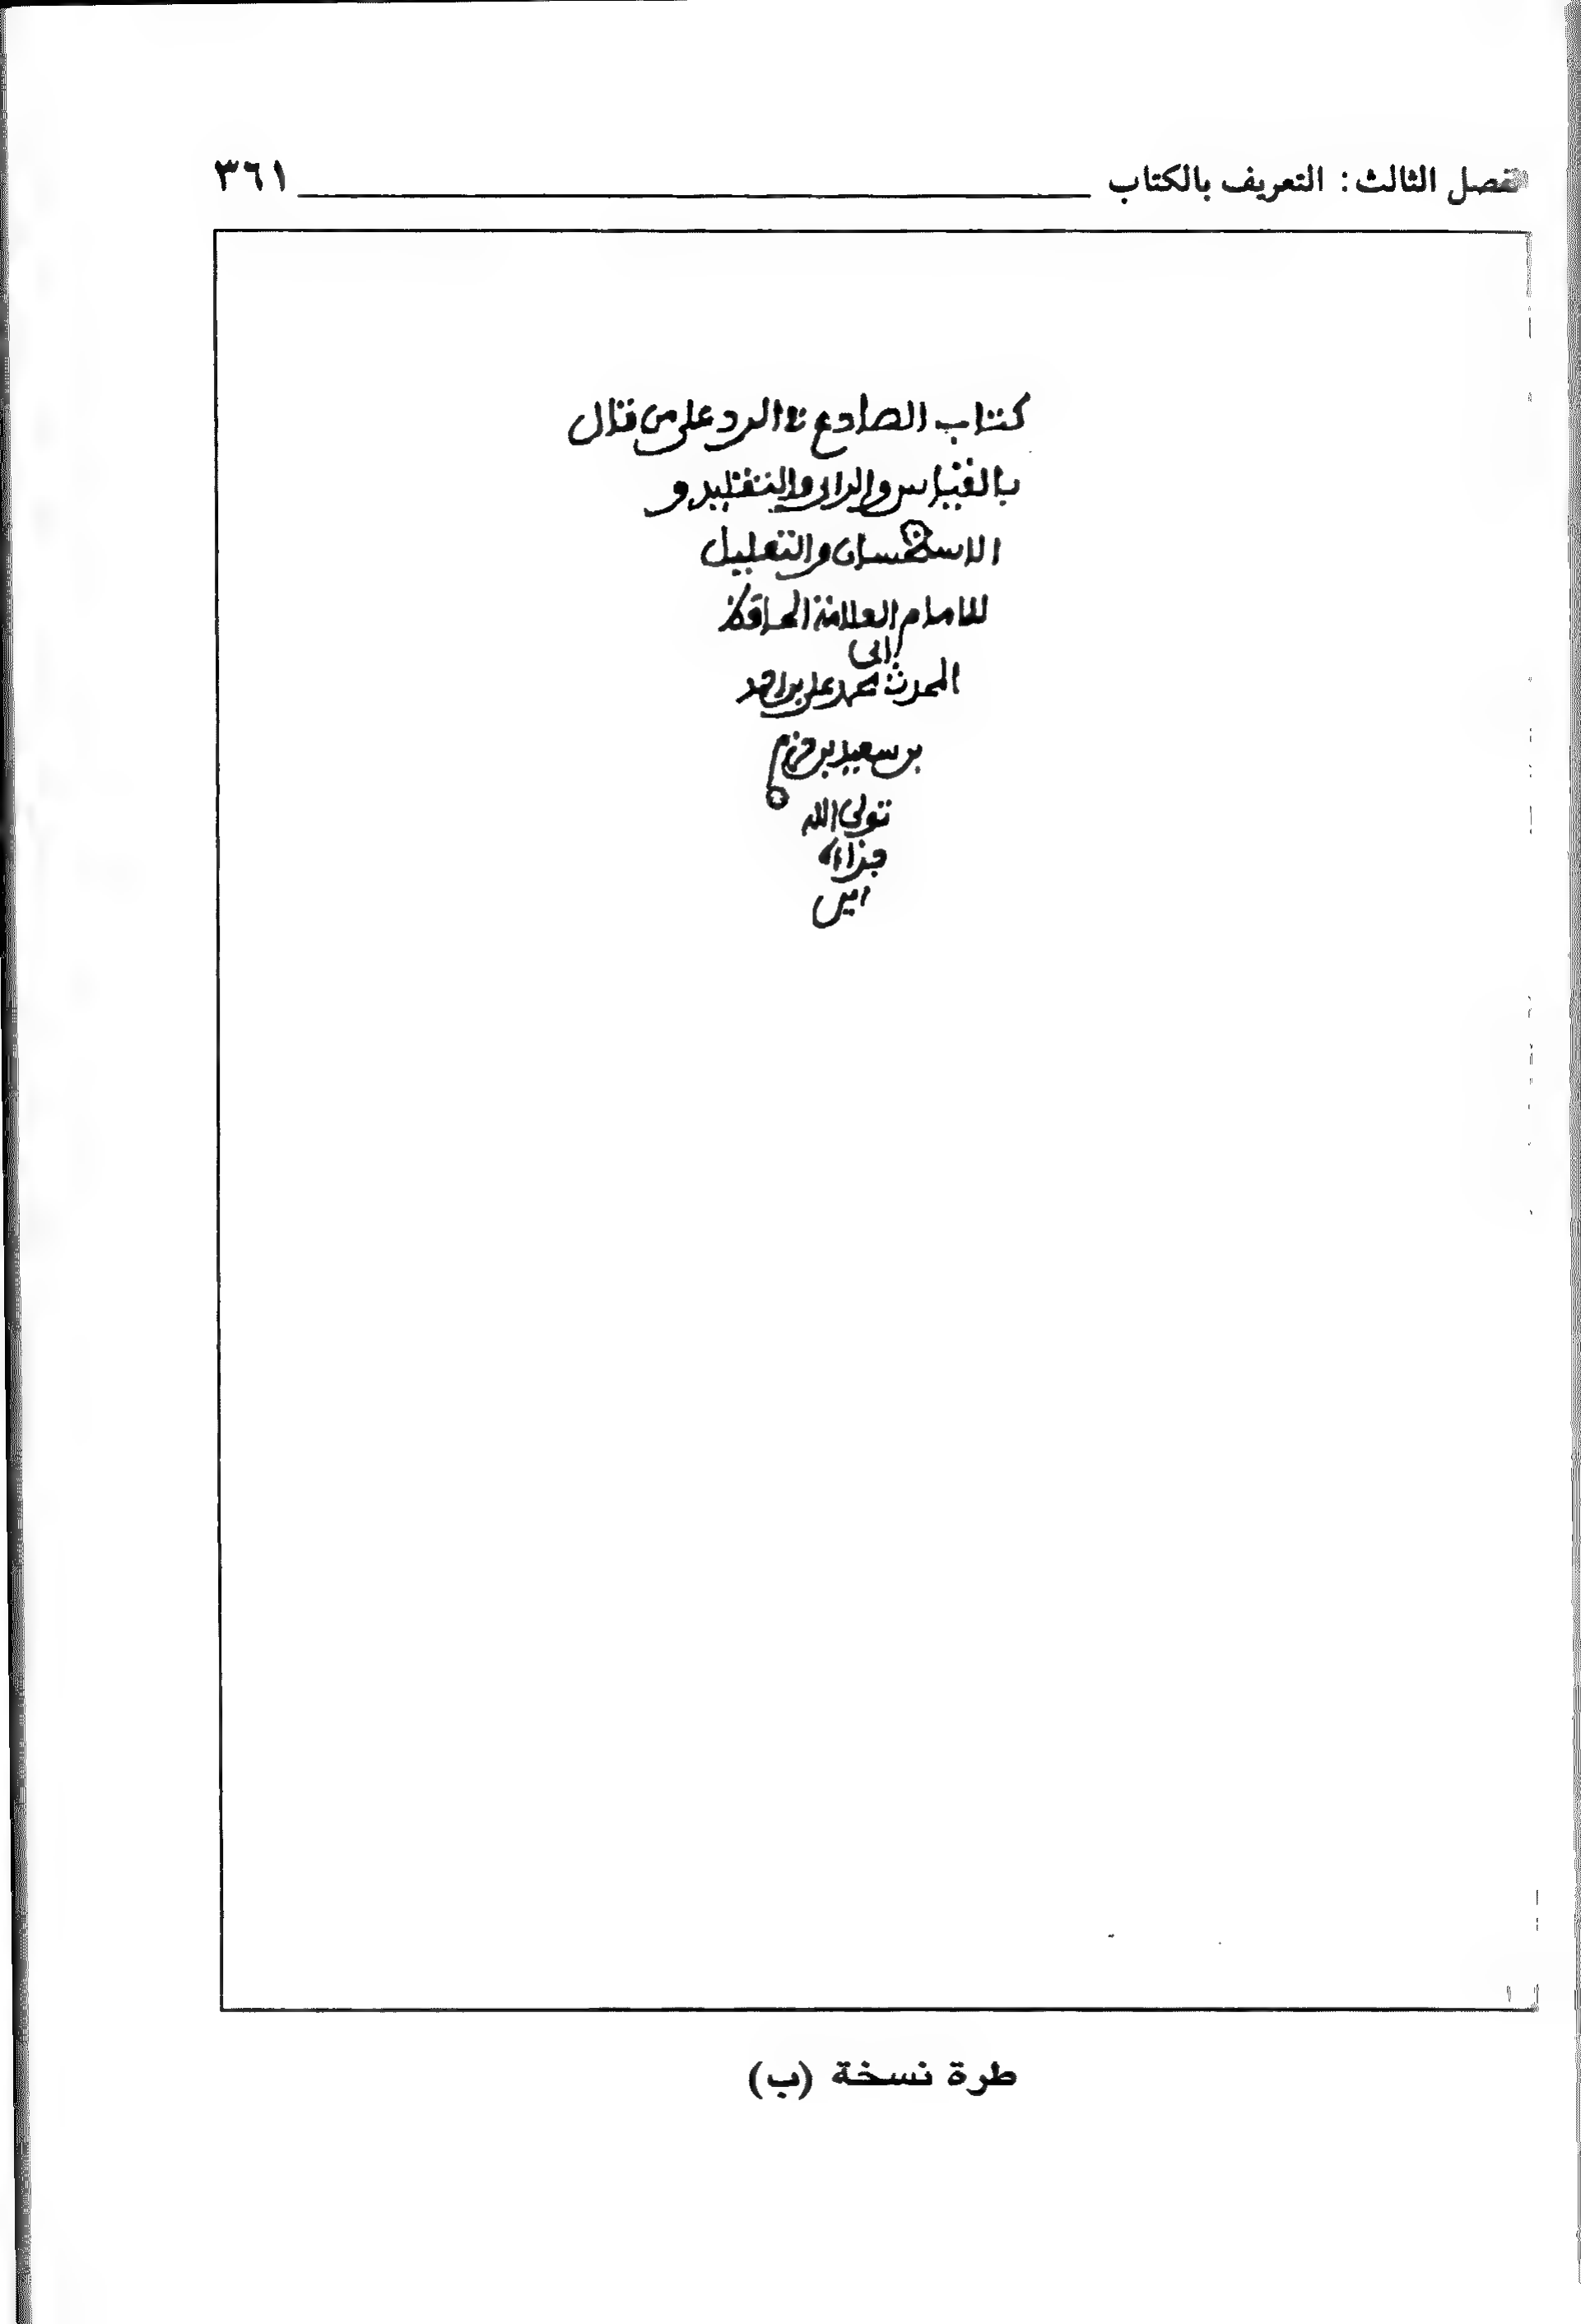 الفصل الثالث: التعريف بالكتاب ٣٦١
كتاب الصادع في الرد على من قال
بالقياس والراي والتقليد و
الاستحسان والتعليل
للامام العلامة الحافظ
ابي
المحدث محمد علي بن احمد
بن سعيد بن حزم
تولى الله
جزاءه
امين
طرة نسخة (ب)